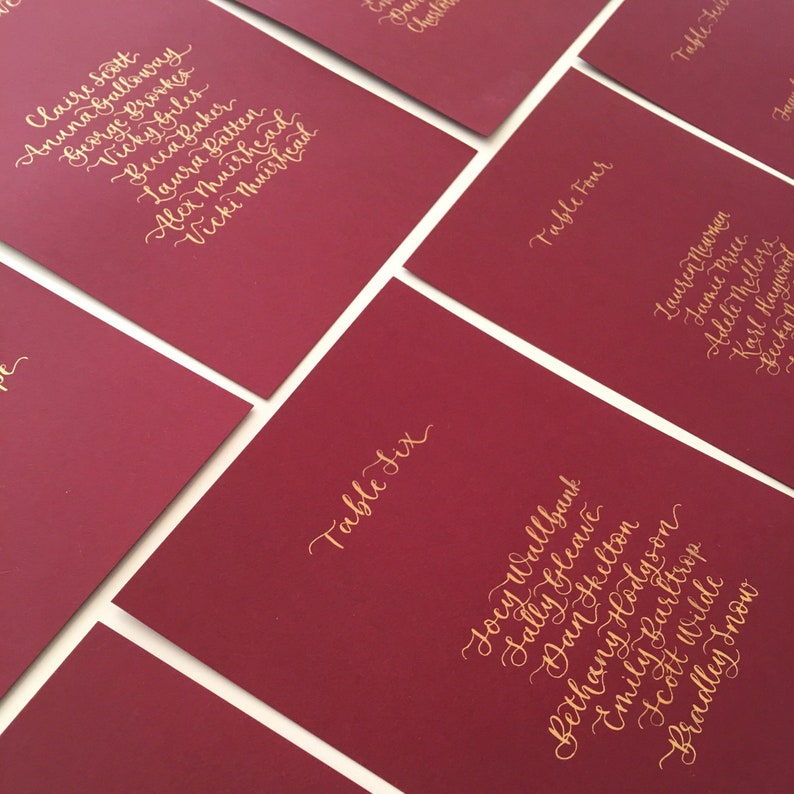 Claire Scott
Anuna Galloway
George Brookes
Vicky Giles
Becca Baker
Laura Batten
Alex Muirhead
Vicki Muirhead
Table Four
Lauren Newman
Jamie Price
Adele Mellors
Karl Haywood
Becky
Table Six
Joey Wallbank
Sally Gleave
Dan Skelton
Bethany Hodyson
Emily Barltrop
Scott Wilde
Bradley Snow
Table